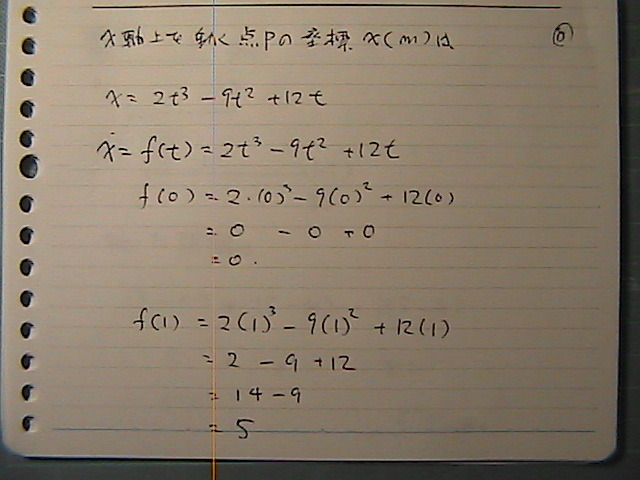 x軸上で動く点Pの座標 x(m)は ⑥
x = 2t³ - 9t² + 12t
x = f(t) = 2t³ - 9t² + 12t
f(0) = 2・(0)³ - 9(0)² + 12(0)
= 0 - 0 + 0
= 0.
f(1) = 2(1)³ - 9(1)² + 12(1)
= 2 - 9 + 12
= 14 - 9
= 5